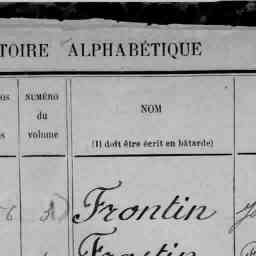 TOIRE ALPHABÉTIQUE
OS NUMÉRO
du NOM
s volume (Il doit être écrit en bâtarde)
6 Frontin